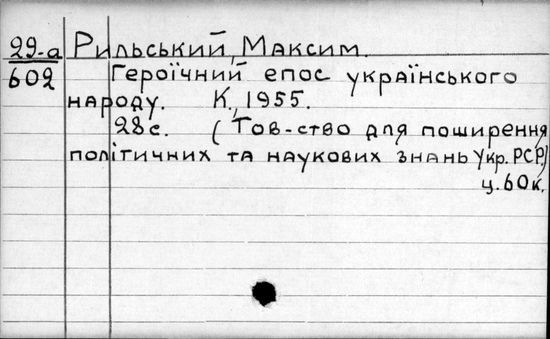 29-а Рильський, Максим.
602 Героїчний епос українського
народу. К., 1955.
28с. (Тов-ство для поширення
політичних та наукових знань Укр. РСР.)
ц. 60к.